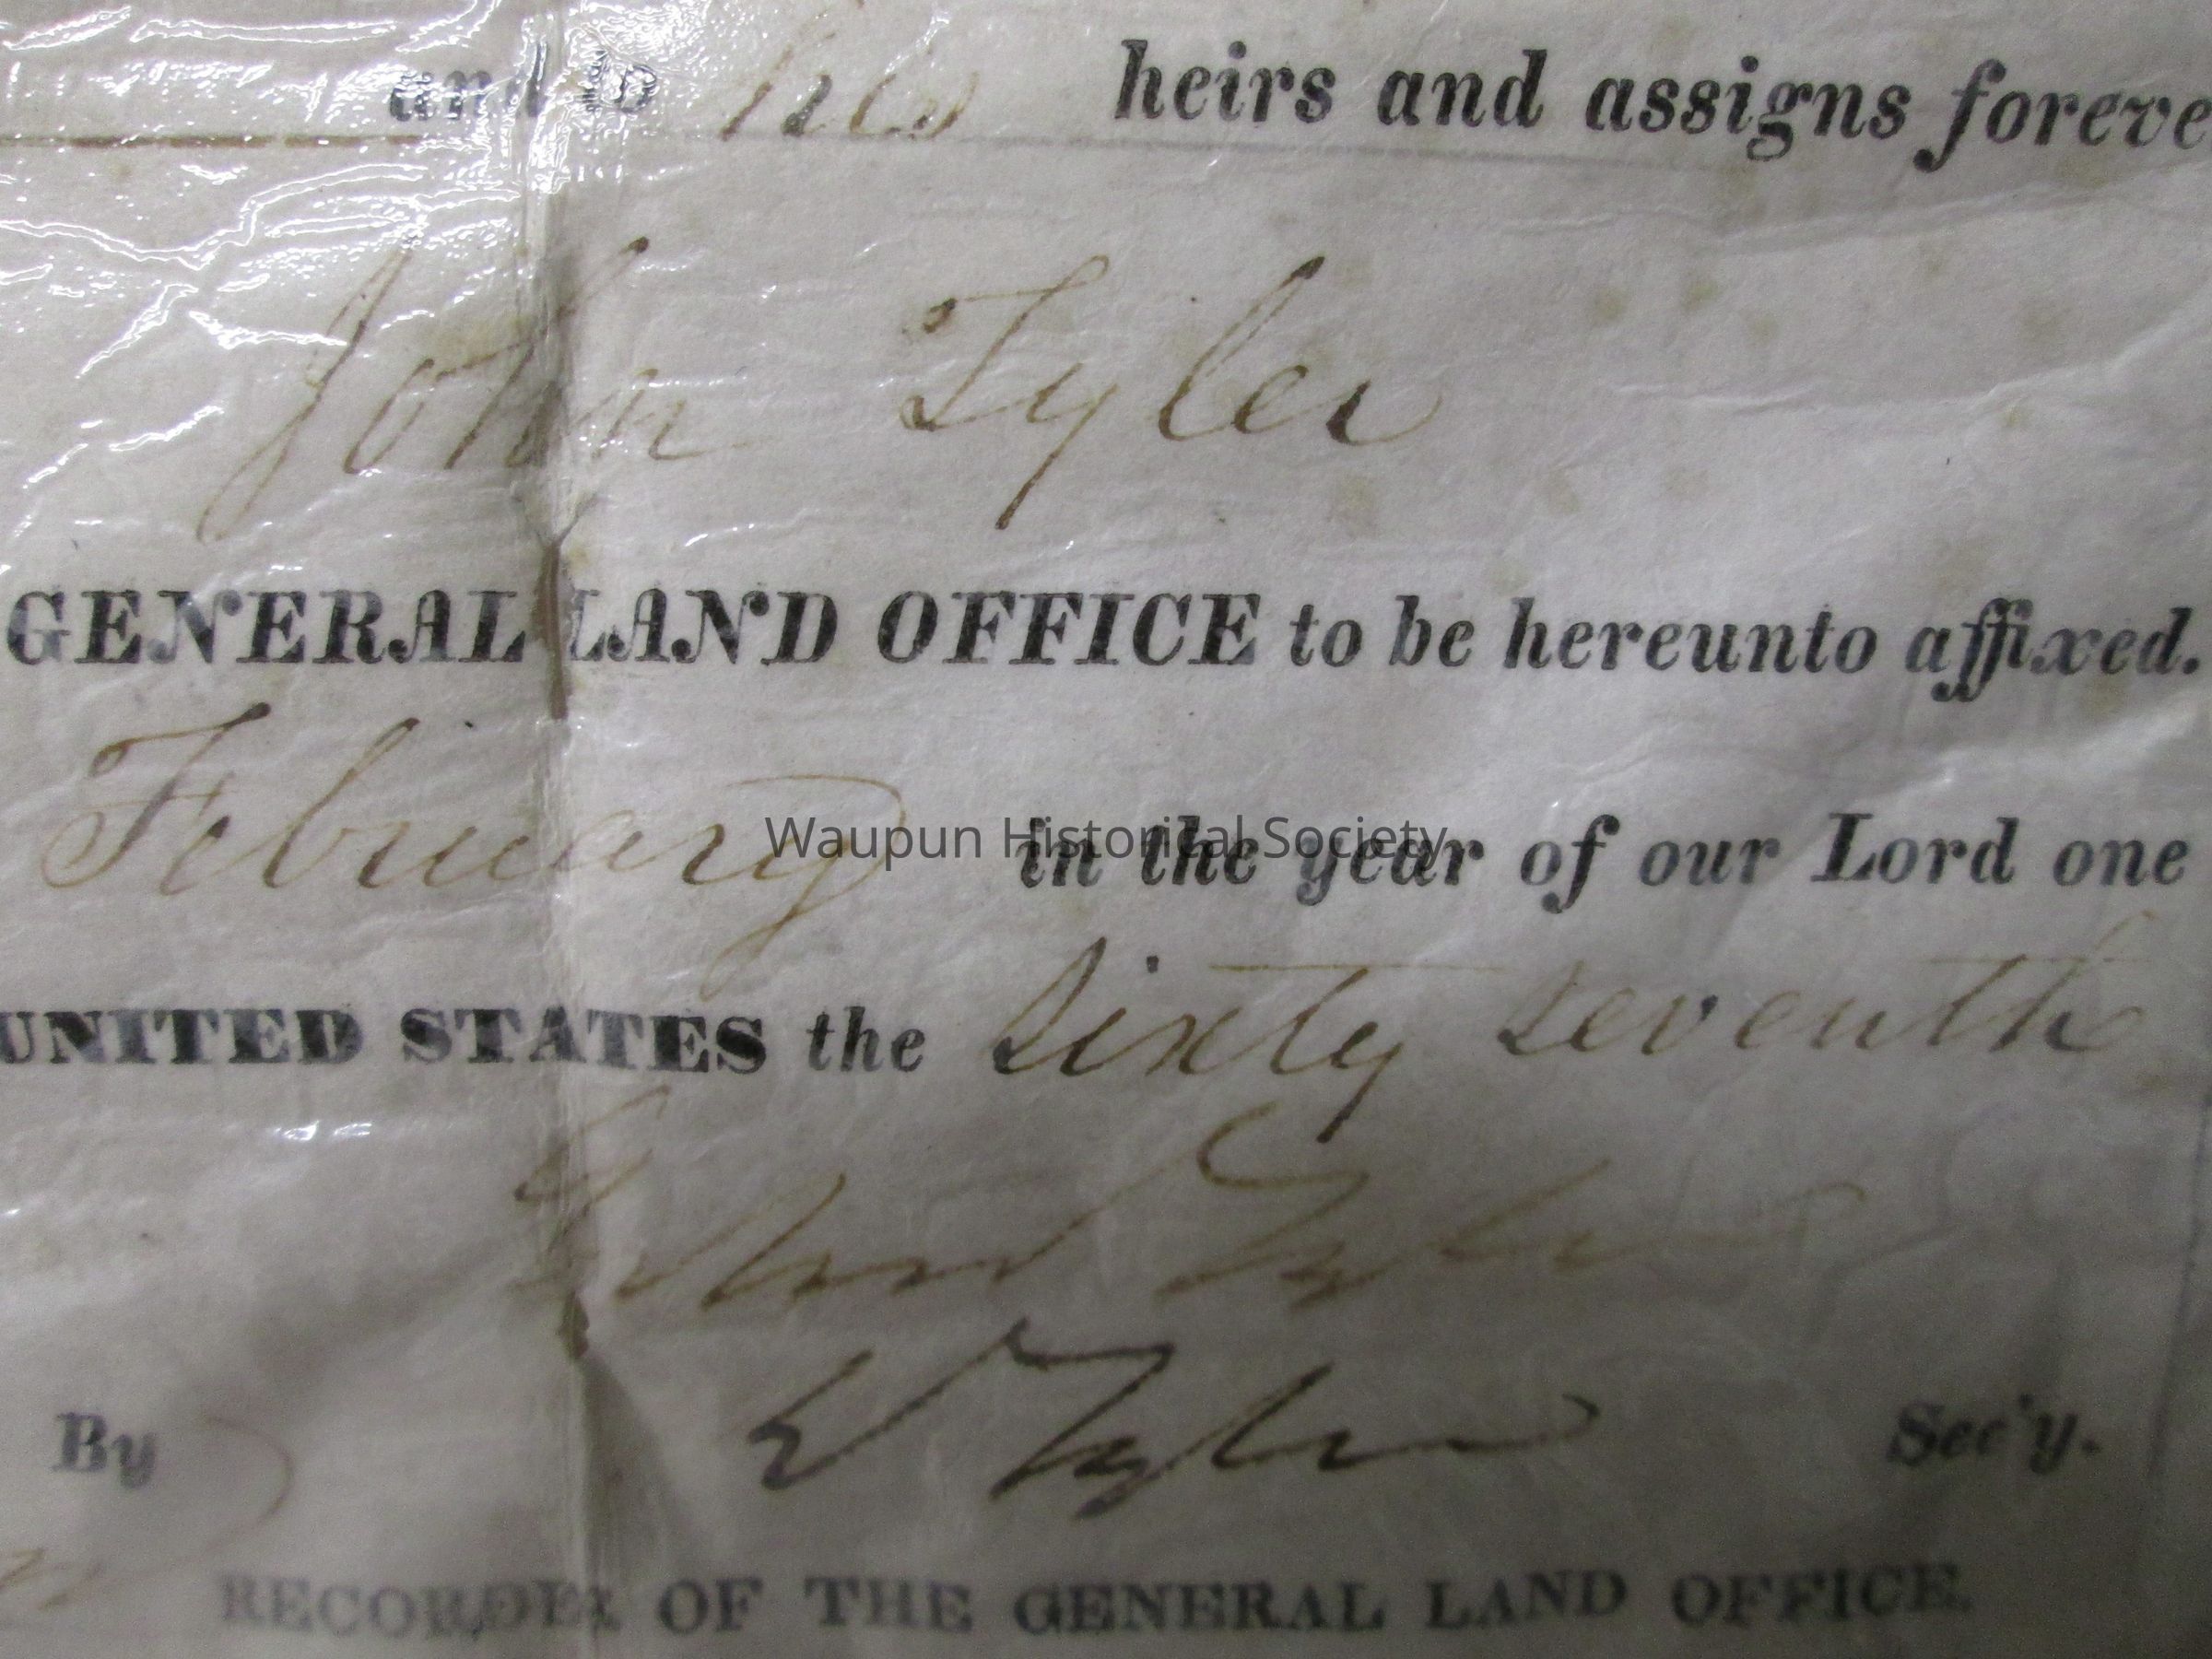 and to his heirs and assigns foreve
John Tyler
GENERAL LAND OFFICE to be hereunto affixed.
February in the year of our Lord one
Waupun Historical Society
UNITED STATES the Sixty seventh
John Tyler
By R Tyler Sec'y.
RECORDER OF THE GENERAL LAND OFFICE.